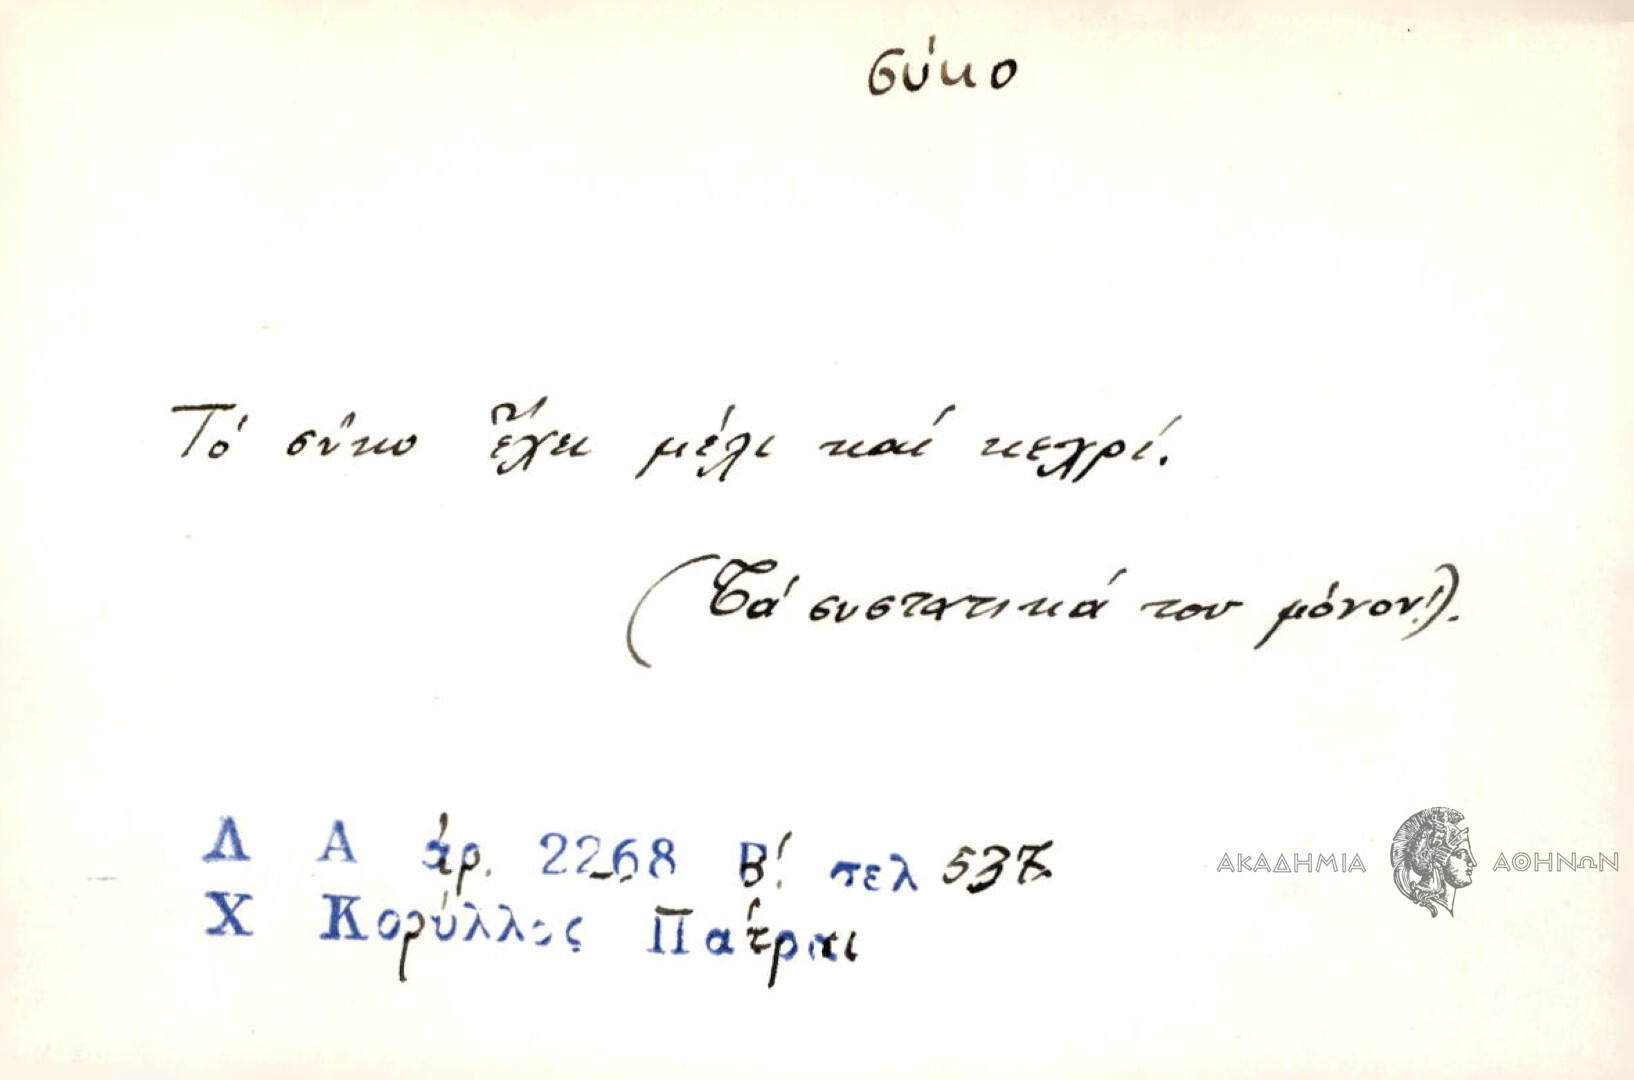 σύκο
Τό σῦκο ἔχει μέλι καί κεχρί.
(Τά συστατικά του μόνον!).
Λ Α ἀρ. 2268 Β'. τελ 537
Χ Κορύλλος Πάτραι
ΑΚΑΔΗΜΙΑ ΑΘΗΝΩΝ